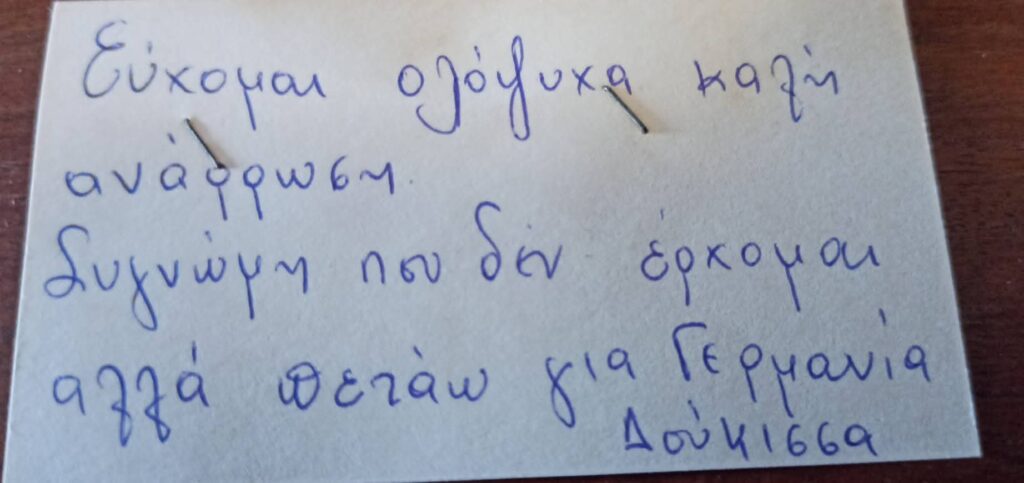 Εύχομαι ολόψυχα καλή
ανάρρωση.
Συγνώμη που δέν έρχομαι
αλλά πετάω για Γερμανία
Δούκισσα